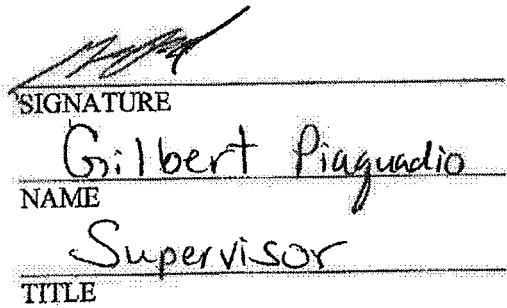 SIGNATURE
Gilbert Piaquadio
NAME
Supervisor
TITLE